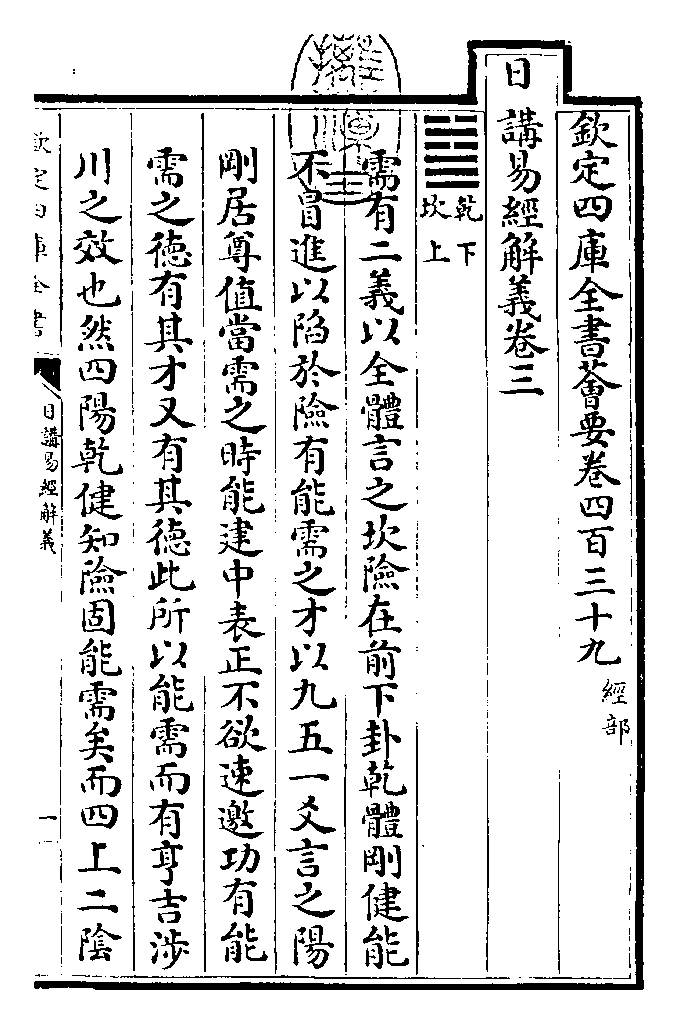 欽定四庫全書薈要卷四百三十九 經部
日講易經解義卷三
䷄ 乾下
坎上
需有二義以全體言之坎險在前下卦乾體剛健能
不冒進以陷於險有能需之才以九五一爻言之陽
剛居尊值當需之時能建中表正不欲速邀功有能
需之德有其才又有其德此所以能需而有亨吉涉
川之效也然四陽乾健知險固能需矣而四上二陰
欽定四庫全書
日講易經解義
一